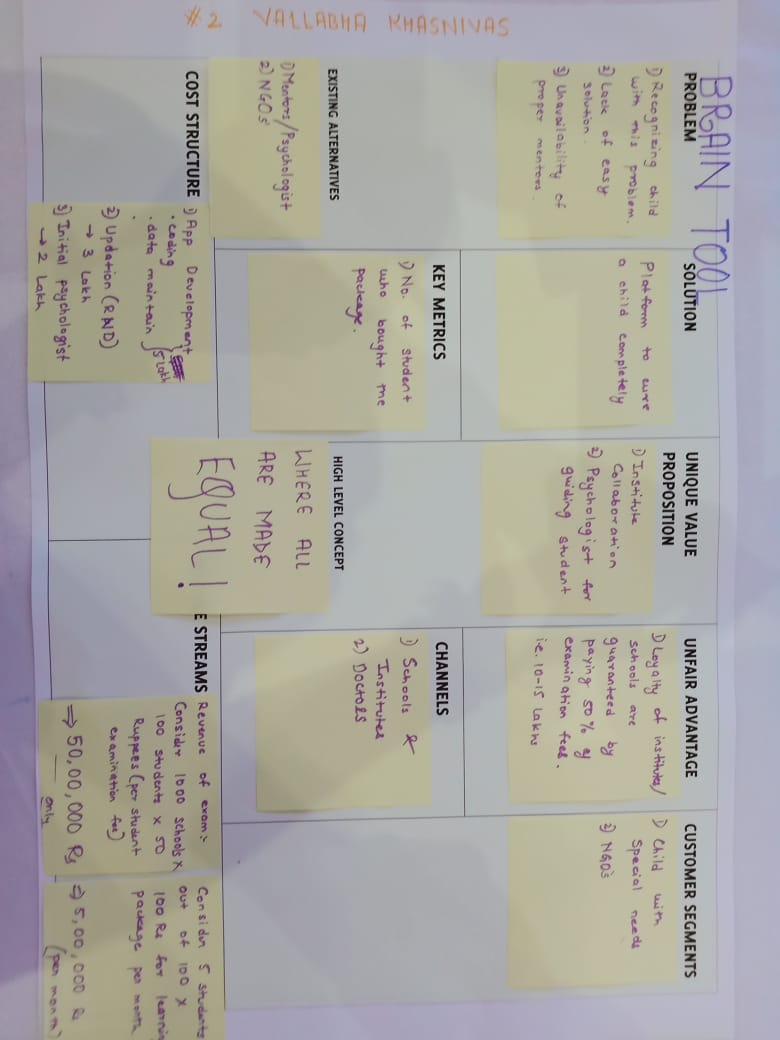 #2 VALLABHA KHASNIVAS
BRAIN TOOL
PROBLEM
1) Recognizing child
with this problem.
2) Lack of easy
solution.
3) Unavailability of
proper mentors.
EXISTING ALTERNATIVES
1) Mentors/Psychologist
2) NGO's
SOLUTION
Platform to cure
a child completely
KEY METRICS
1) No. of student
who bought the
package.
UNIQUE VALUE
PROPOSITION
1) Institute
Collaboration
2) Psychologist for
guiding student
HIGH LEVEL CONCEPT
WHERE ALL
ARE MADE
EQUAL!
UNFAIR ADVANTAGE
1) Loyalty of institutes/
schools are
guaranteed by
paying 50% of
examination fees.
i.e. 10-15 Lakhs
CHANNELS
1) Schools &
Institutes
2) DOCTORS
CUSTOMER SEGMENTS
1) Child with
Special needs
2) NGO's
COST STRUCTURE
1) App Development
• coding
• data maintain 5 Lakh
2) Updation (RND)
→ 3 Lakh
3) Initial psychologist
→ 2 Lakh
E STREAMS
Revenue of exam:-
Consider 1000 schools x
100 students x 50
Ruppees (per student
examination fee)
⇒ 50,00,000 Rs
only
Consider 5 students
out of 100 x
100 Rs for learnin
package per month
⇒ 5,00,000 Rs
(per month)